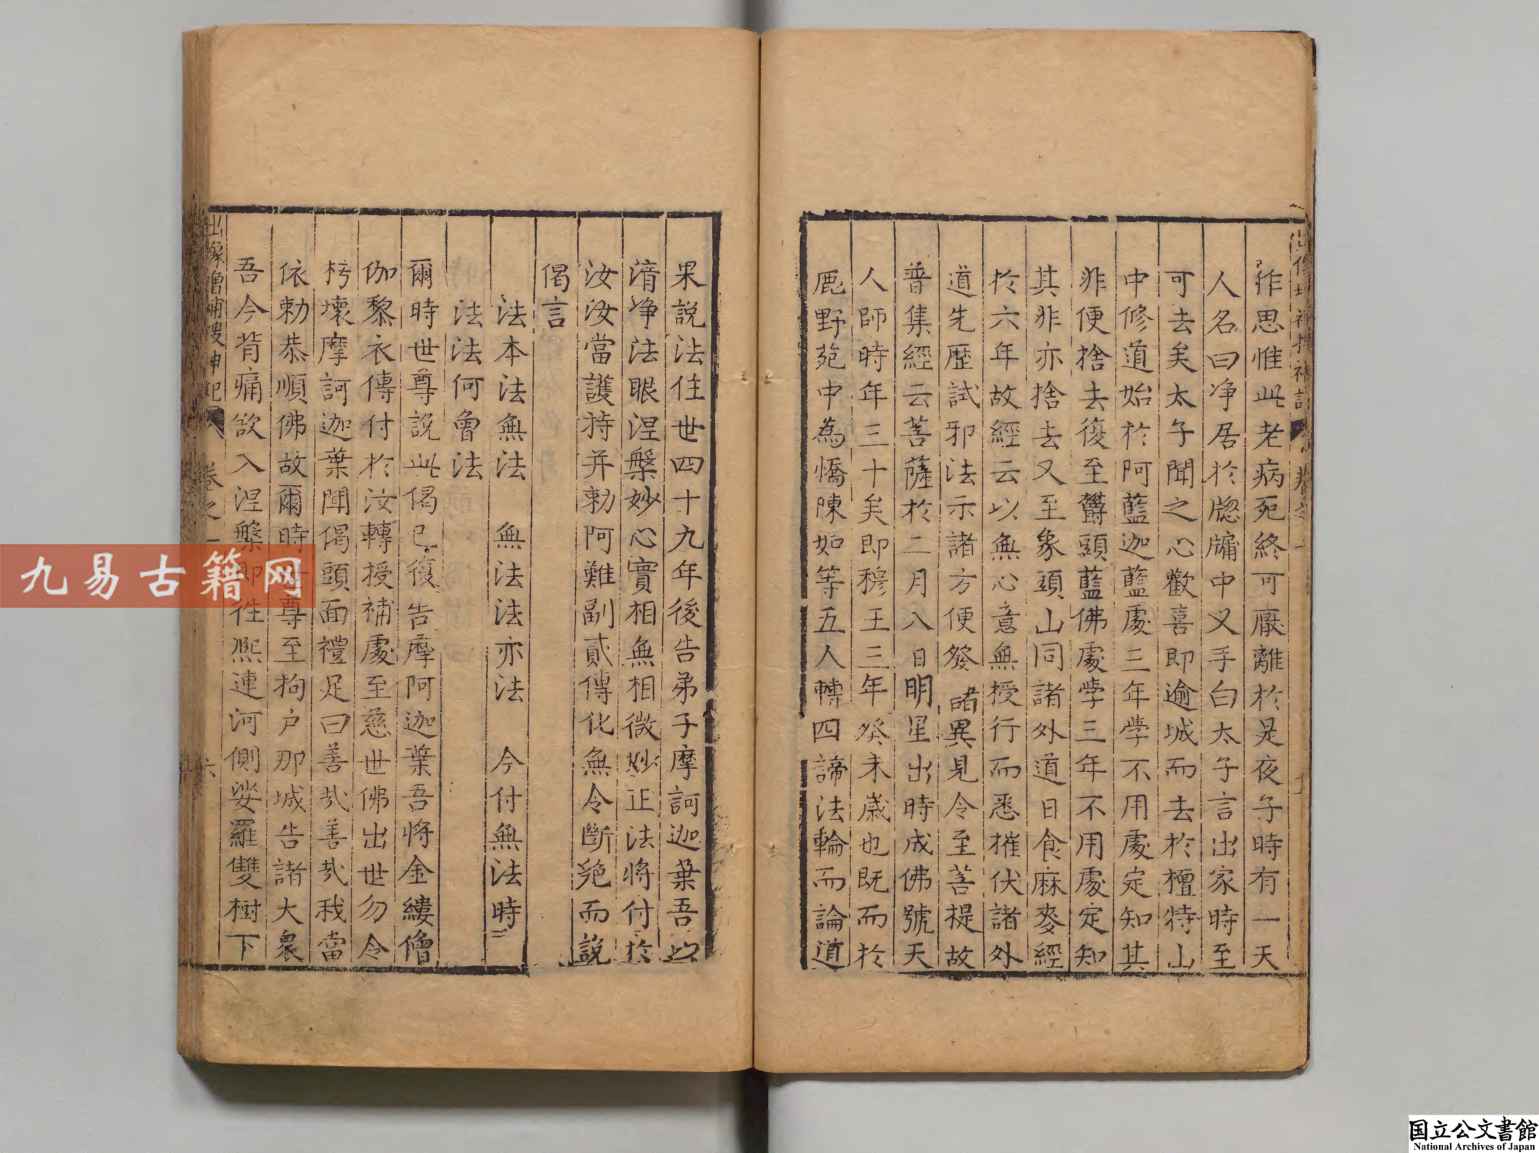 作思惟此老病死終可厭離於是夜子時有一天
人名曰净居於牕牖中叉手白太子言出家時至
可去矣太子聞之心歡喜即逾城而去於檀特山
中修道始於阿藍迦藍處三年學不用處定知其
非便捨去復至欝頭藍佛處學三年不用處定知
其非亦捨去又至象頭山同諸外道日食麻麥經
於六年故經云以無心意無授行而悉摧伏諸外
道先歷試邪法示諸方便發諸異見令至菩提故
普集經云菩薩於二月八日明星出時成佛號天
人師時年三十矣即穆王三年癸未歲也既而於
鹿野苑中為憍陳如等五人轉四諦法輪而論道
果說法住世四十九年後告弟子摩訶迦葉吾以
清净法眼涅槃妙心實相無相微妙正法將付於
汝汝當護持并勅阿難副貳傳化無令斷絶而說
偈言
法本法無法　無法法亦法　今付無法時
法法何曾法
爾時世尊說此偈已復告摩阿迦葉吾將金縷僧
伽黎衣傳付於汝轉授補處至慈世佛出世勿令
朽壞摩訶迦葉聞偈頭面禮足曰善哉善哉我當
依勅恭順佛故爾時世尊至拘尸那城告諸大衆
吾今背痛欲入涅槃即往熙連河側娑羅雙樹下
出像增補搜神記 卷之一 六
九易古籍网
国立公文書館
National Archives of Japan